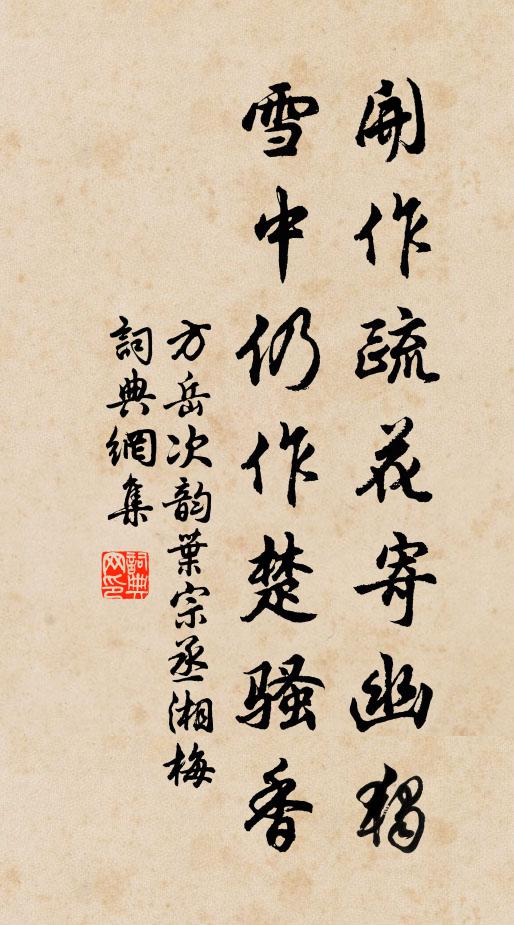 開作疏花寄幽獨
雪中仍作楚騷香
方岳次韵葉宗丞湘梅
詞典網集
詞典網印